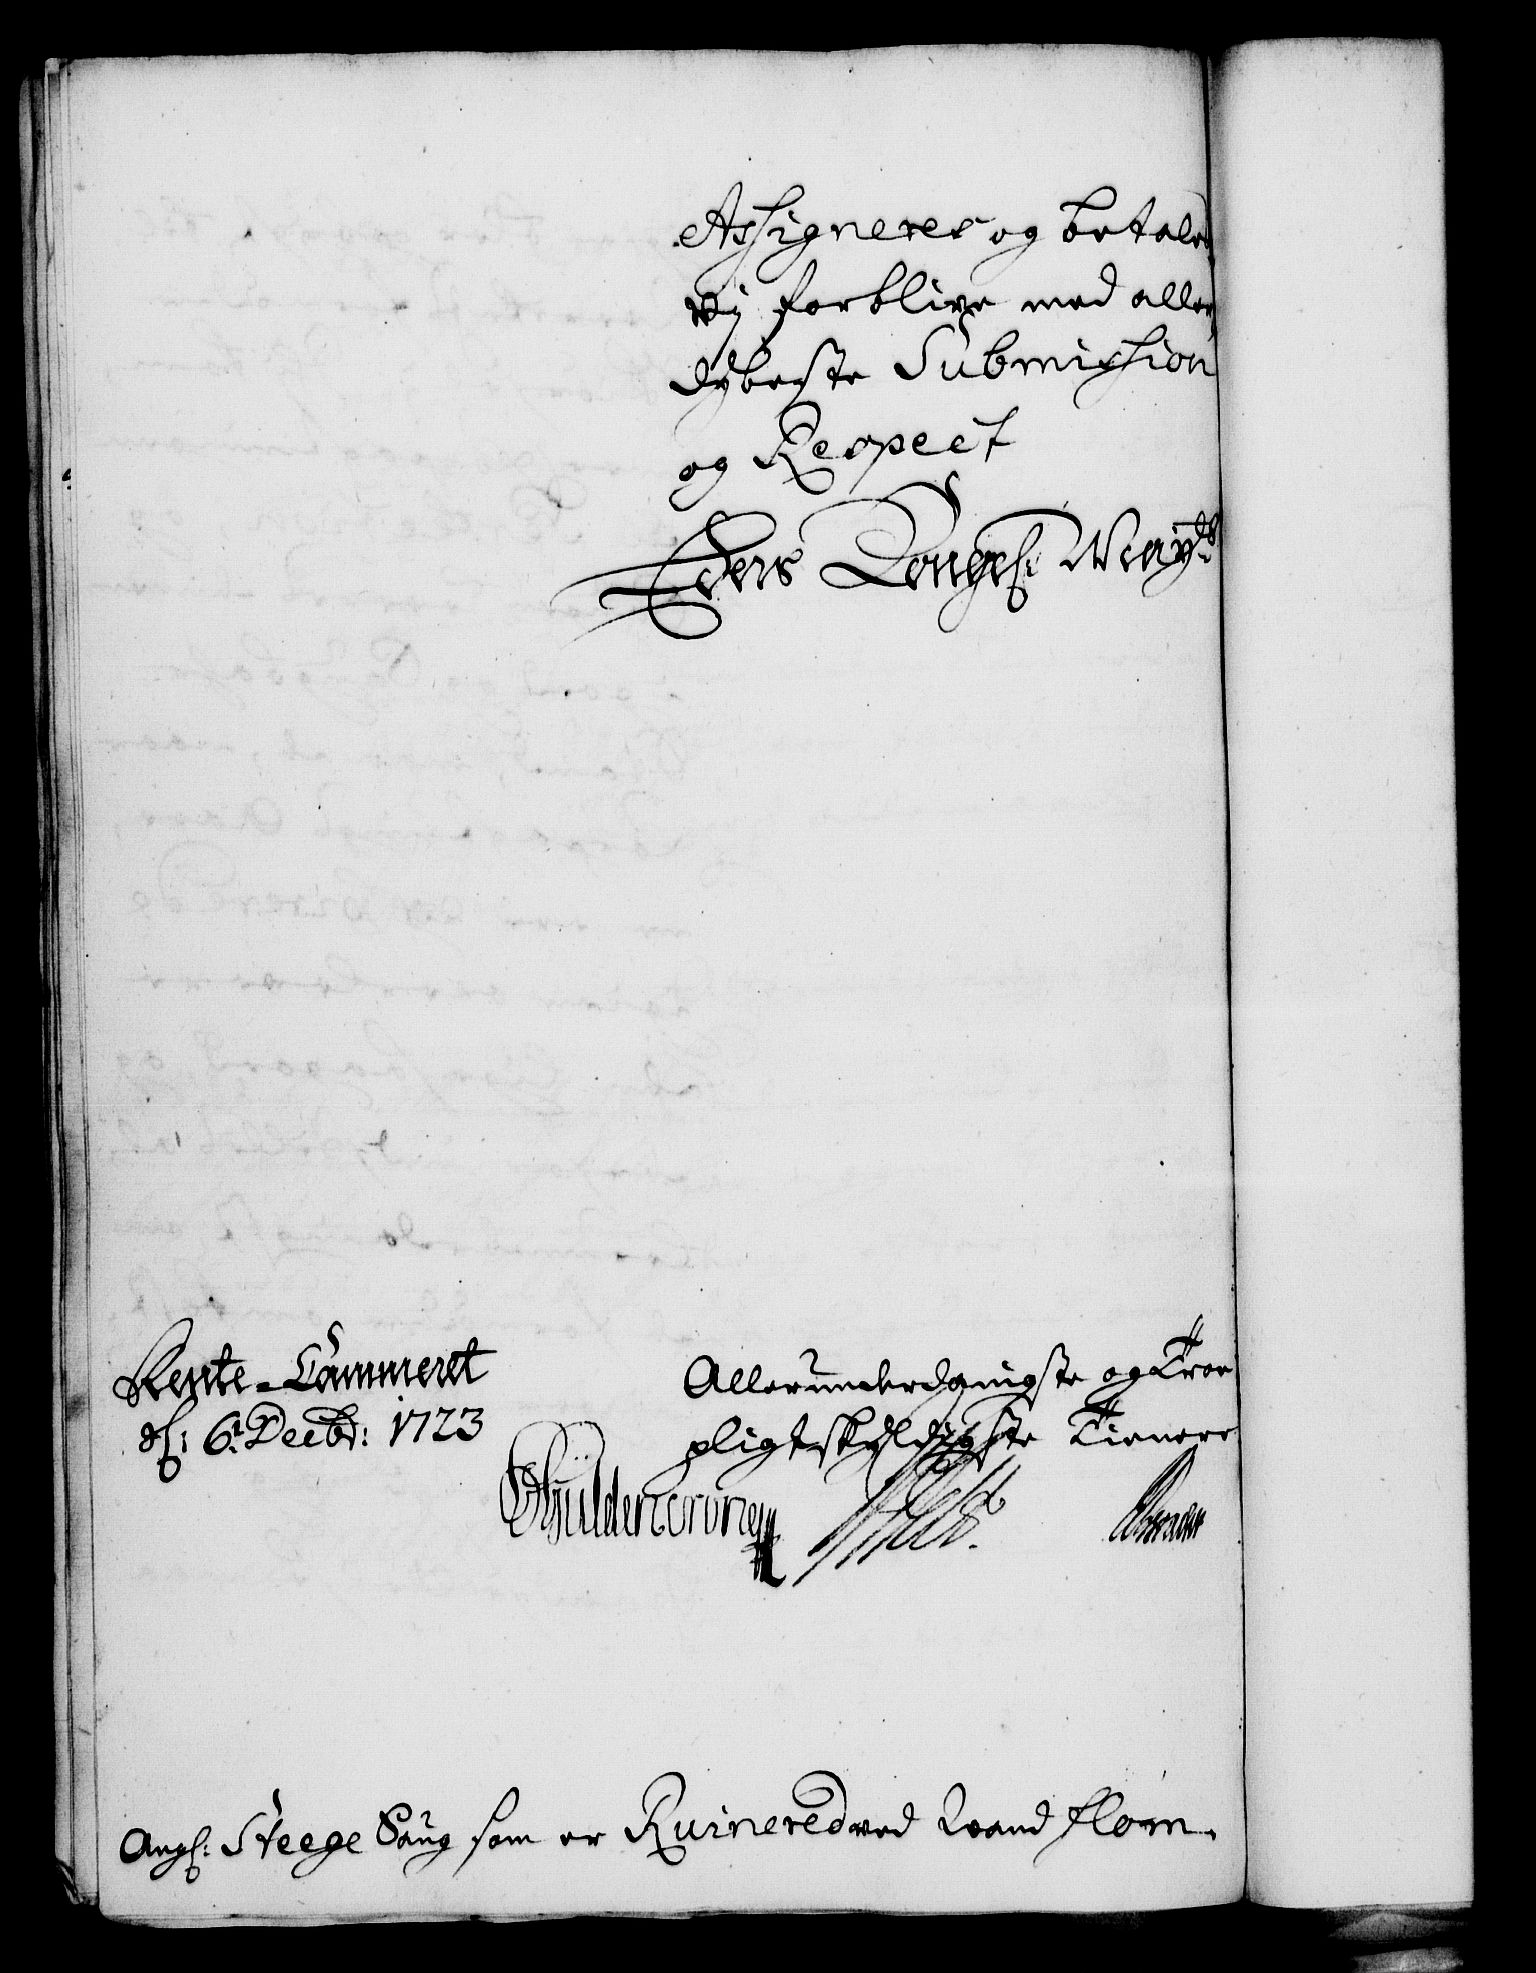 Assigneres og betales
vij forblive med aller
dybeste Submission
og Respect
Eders Kongel: May:ts
Rente-Cammeret
d: 6t Decbr: 1723
Allerunderdanigste og Troe
pligtskyldigste Tienere
Gyldencrone
Angl: Steege Haug som er Ruinered ved Vand flom.